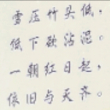 雪压竹头低，
低下欲沾泥。
一朝红日起，
依旧与天齐。